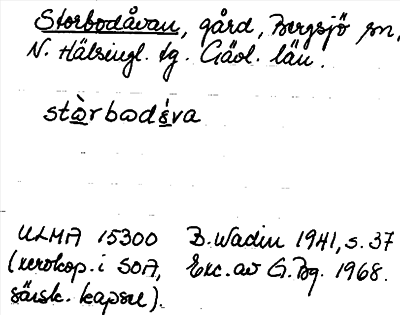 Storbodåvan, gård, Bergsjö sn,
N. Hälsingl. tg. Gävl. län.
stòrbodåva
ULMA 15300 B. Wadin 1941, s. 37
(xerokop. i SOA, Exc. av G. Bg. 1968.
särsk. kapsel).